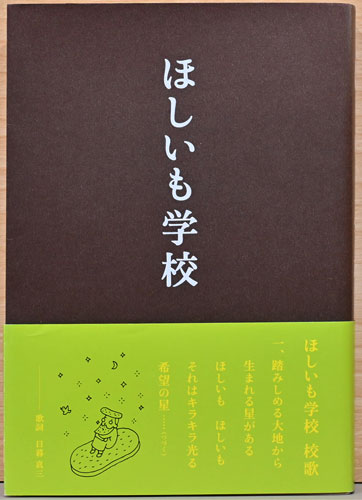 ほしいも学校
ほしいも学校 校歌
一、踏みしめる大地から
生まれる星がある
ほしいも ほしいも
それはキラキラ光る
希望の星